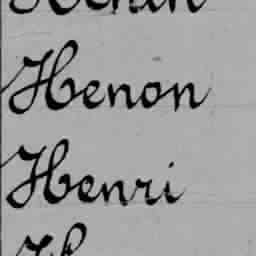 Henon
Henri